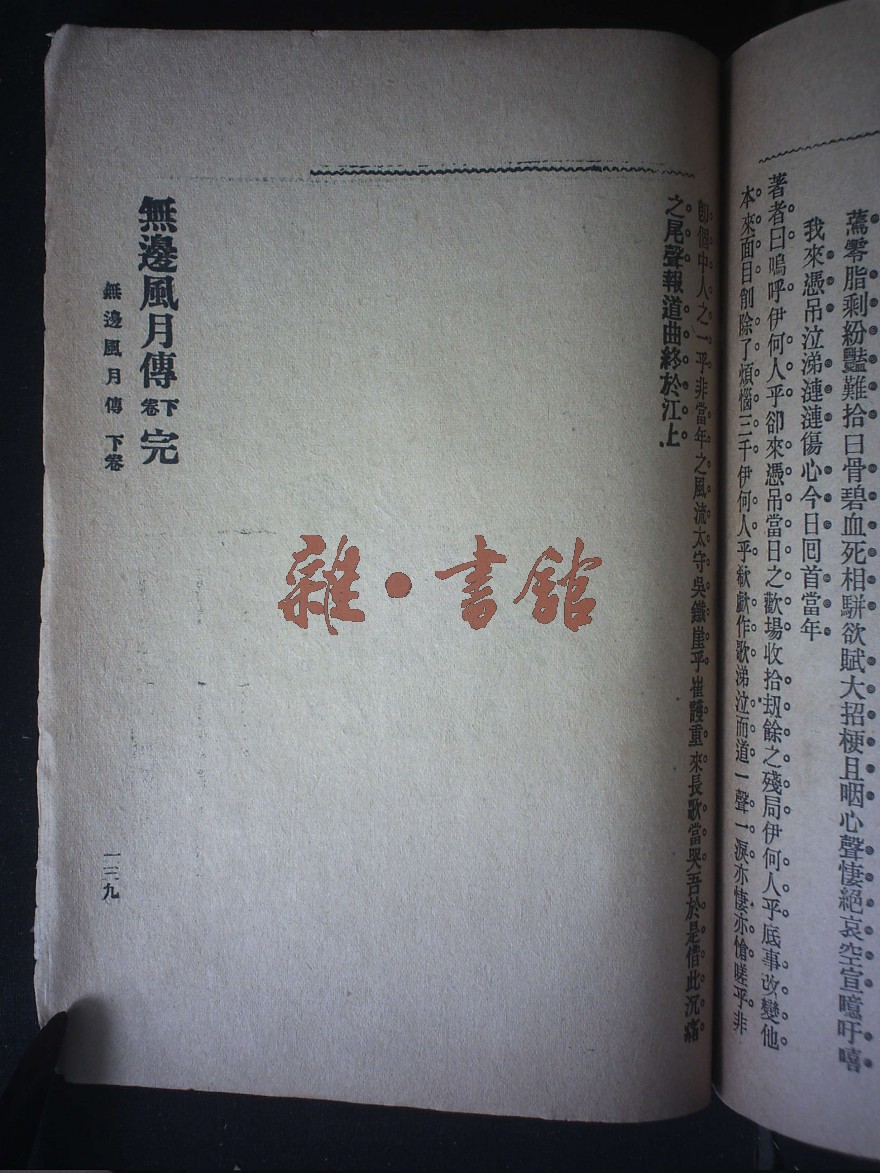 蔫零脂剩紛豔難拾白骨碧血死相駢欲賦大招梗且咽心聲悽絕哀空宣噫吁嘻
我來憑吊泣涕漣漣傷心今日回首當年
著者曰嗚呼伊何人乎卻來憑吊當日之歡場收拾刼餘之殘局伊何人乎底事改變他
本來面目削除了煩惱三千伊何人乎欷歔作歌涕泣而道一聲一淚亦悽亦愴嗟乎非
卽個中人之一乎非當年之風流太守吳鐵崖乎崔護重來長歌當哭吾於是借此沉痛
之尾聲報道曲終於江上
無邊風月傳下卷完
無邊風月傳 下卷
一三九
雜·書館